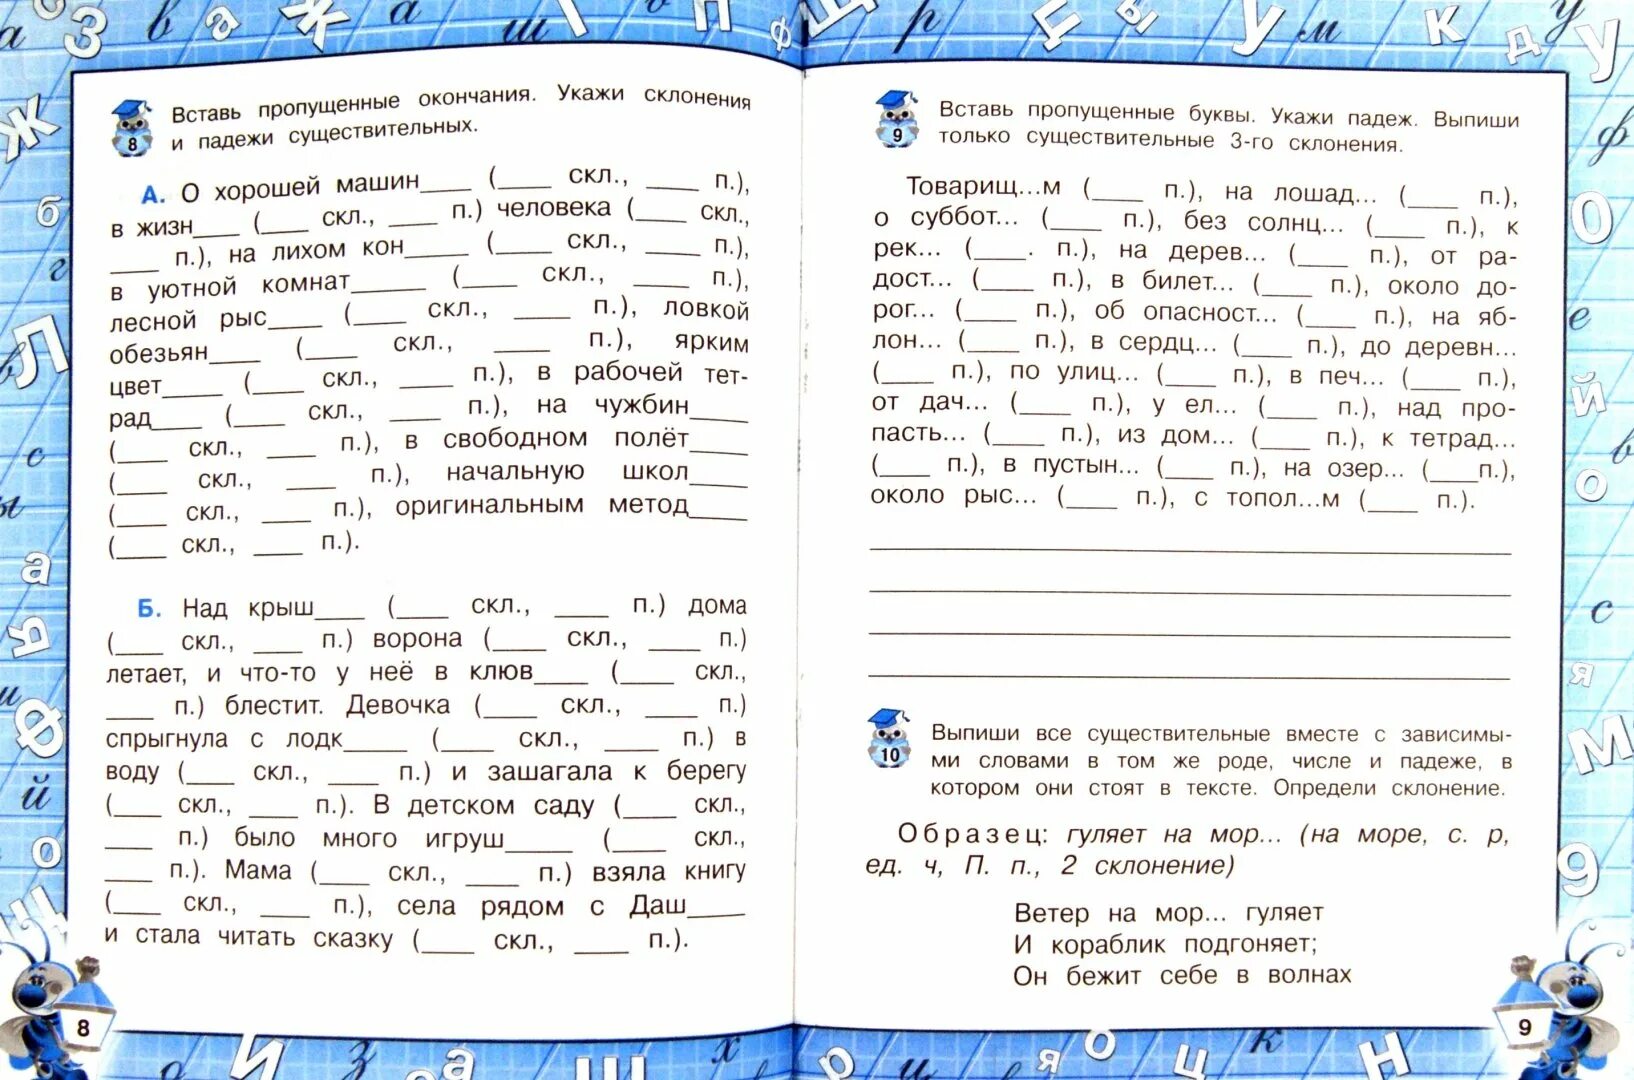 8
Вставь пропущенные окончания. Укажи склонения
и падежи существительных.
А. О хорошей машин____ (____ скл., ____ п.),
в жизн____ (____ скл., ____ п.) человека (____ скл.,
____ п.), на лихом кон____ (____ скл., ____ п.),
в уютной комнат______ (____ скл., ____ п.),
лесной рыс____ (____ скл., ____ п.), ловкой
обезьян____ (____ скл., ____ п.), ярким
цвет____ (____ скл., ____ п.), в рабочей тет-
рад____ (____ скл., ____ п.), на чужбин____
(____ скл., ____ п.), в свободном полёт____
(____ скл., ____ п.), начальную школ____
(____ скл., ____ п.), оригинальным метод____
(____ скл., ____ п.).
Б. Над крыш____ (____ скл., ____ п.) дома
(____ скл., ____ п.) ворона (____ скл., ____ п.)
летает, и что-то у неё в клюв____ (____ скл.,
____ п.) блестит. Девочка (____ скл., ____ п.)
спрыгнула с лодк_____ (____ скл., ____ п.) в
воду (____ скл., ____ п.) и зашагала к берегу
(____ скл., ____ п.). В детском саду (____ скл.,
____ п.) было много игруш_____ (____ скл.,
____ п.). Мама (____ скл., ____ п.) взяла книгу
(____ скл., ____ п.), села рядом с Даш____
и стала читать сказку (____ скл., ____ п.).
8
9
Вставь пропущенные буквы. Укажи падеж. Выпиши
только существительные 3-го склонения.
Товарищ...м (____ п.), на лошад... (____ п.),
о суббот... (____ п.), без солнц... (____ п.), к
рек... (____. п.), на дерев... (____ п.), от ра-
дост... (____ п.), в билет... (____ п.), около до-
рог... (____ п.), об опасност... (____ п.), на яб-
лон... (____ п.), в сердц... (____ п.), до деревн...
(____ п.), по улиц... (____ п.), в печ... (____ п.),
от дач... (____ п.), у ел... (____ п.), над про-
пасть... (____ п.), из дом... (____ п.), к тетрад...
(____ п.), в пустын... (____ п.), на озер... (____п.),
около рыс... (____ п.), с топол...м (____ п.).
10
Выпиши все существительные вместе с зависимы-
ми словами в том же роде, числе и падеже, в
котором они стоят в тексте. Определи склонение.
Образец: гуляет на мор... (на море, с. р,
ед. ч, П. п., 2 склонение)
Ветер на мор... гуляет
И кораблик подгоняет;
Он бежит себе в волнах
9